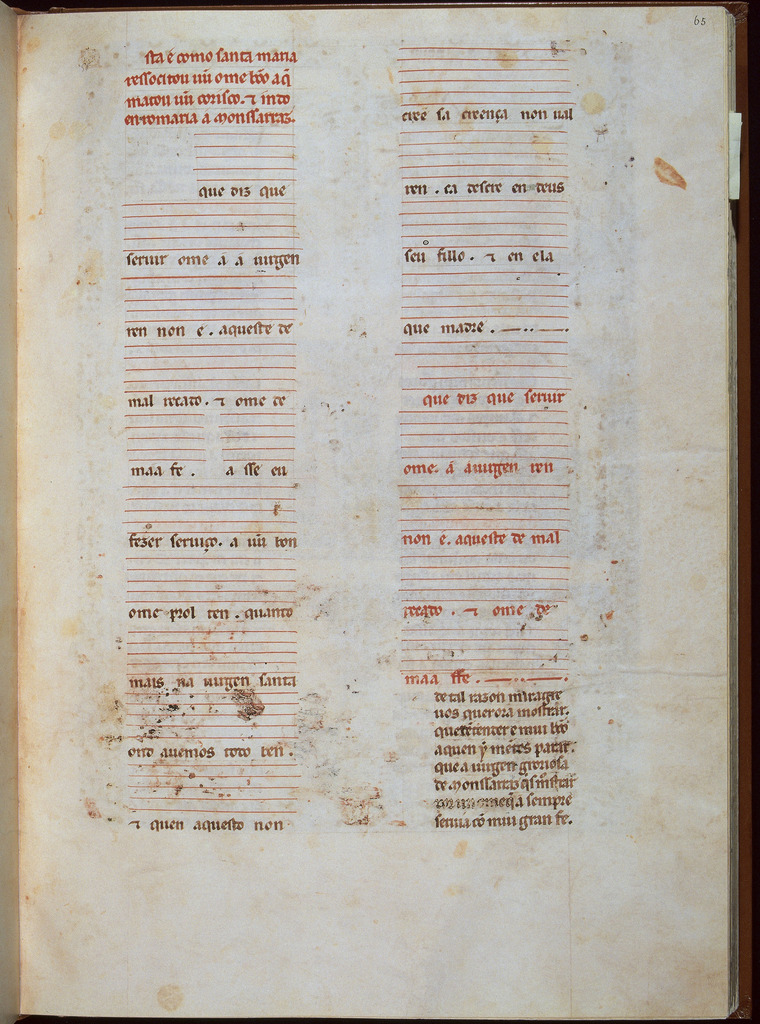 65
sta é como santa maria
ressocitou uũ ome bõo a q̃
matou uũ corisco. ⁊ indo
en romaria a monssarraz.
que diz que
seruir ome á á uirgen
ren non é. aqueste de
mal recado. ⁊ ome de
maa fe. a sse eu
fezer seruiço. a uũ bon
ome prol ten. quanto
mais na uirgen santa
onde auemos todo ben.
⁊ quen aquesto non
cree sa creença non ual
ren. ca descre en deus
seu fillo. ⁊ en ela
que madre.
que diz que seruir
ome. á a uirgen ren
non é. aqueste de mal
recado. ⁊ ome de
maa ffe.
de tal razon miragre
uos querora mostrar.
que tenter e mui bõo
a quen y mẽtes parar.
que a uirgen groriosa
de monssarraz q̃s mostrar
por ome q̃ a sempre
seruia cõ mui gran fe.